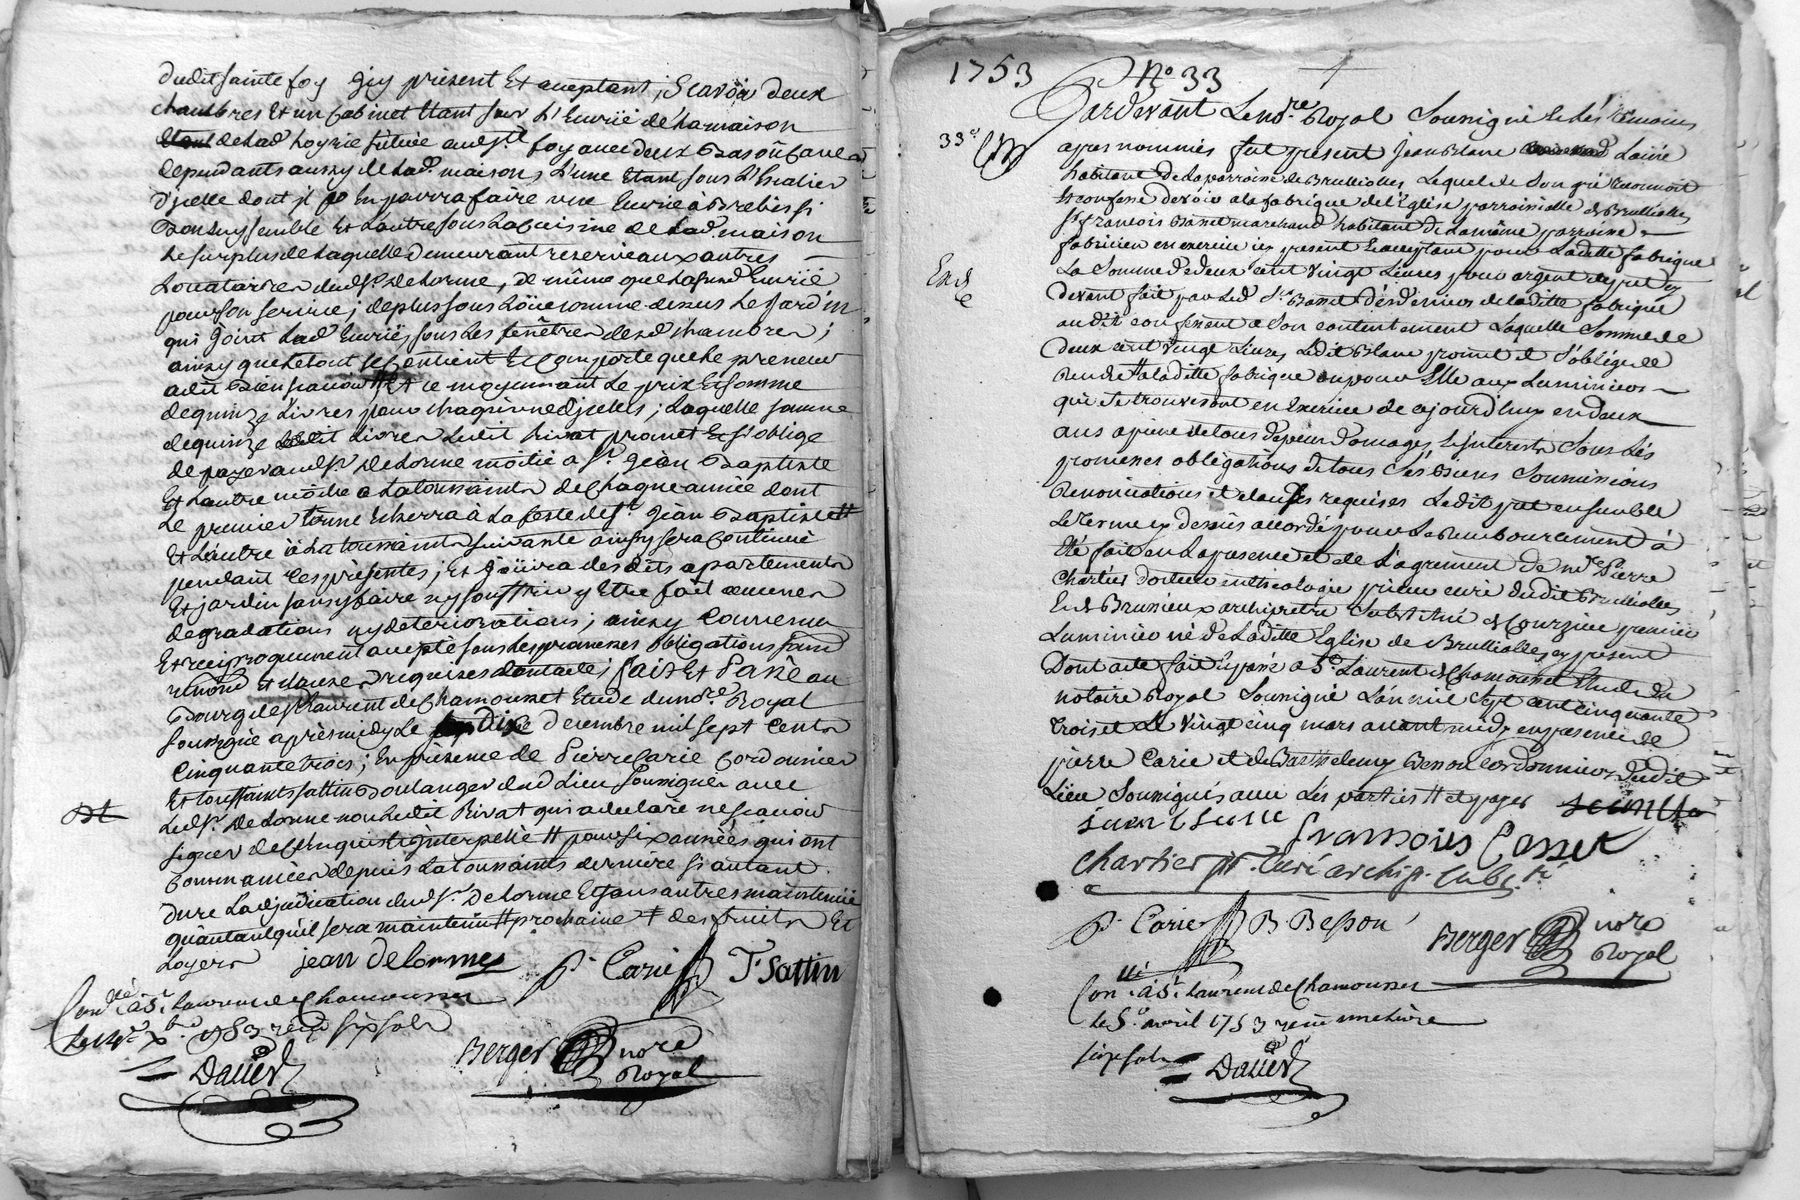 dudit sainte foy icy présent Et aceptant ; Scavoir deux
chambres Et un Cabinet Etant sur L'Ecurië de La maison
de Lad. hoyrie scituée aud. st foy avec deux
dépendants aussy de Lad. maison, L'une Etant sous L'Escalier
d'jcelle dont il En pourra faire une Ecurie à Brebis si
Bon luy semble Et L'autre sous La Cuisine de Lad. maison
Le surplus de Laquelle demeurant reservé aux autres
Locataires dud. sr. Delorme, de même que La susd. Ecurië
pour son service ; de plus sous Loüe comme dessus Le Jardin
qui Joint Lad. Ecurië, sous Les fenêtres desd. chambres ;
ainsy que Le tout se Contient Et Comporte que Le preneur
a dit Bien scavoir Et ce moyennant Le prix Et somme
de quinze Livres pour chaqu'une d'jcelles ; Laquelle somme
de quinze Livres Ledit Rivat promet Et s'oblige
de payer aud. sr. Delorme moitié a St. Jèan Baptiste
Et L'autre moitié a La toussaints de Chaque année dont
Le premier terme Echerra à La feste de St. Jèan Baptiste
Et L'autre à La toussaints suivante ainsy sera Continué
pendant Ces présentes ; Et Joüira desdits apartements
Et jardin sans y faire ny souffrir y Etre fait aucunes
dégradations ny déteriorations ; ainsy Convenu
Et reciproquement accepté sous Les promesses obligations
renond. Et clauses requises dont acte ; fait Et Passé au
Bourg de St. Laurent de Chamousset Etude du nore. Royal
soussigné après midy Le Dix Décembre mil sept Cents
Cinquante trois ; En présence de Pierre Carie Cordonnier
Et toussaints sattin Boulanger dud. Lieu soussignés avec
Led. sr. Delorme non Ledit Rivat qui a déclaré ne scavoir
signer de Ce enquis Et interpellé pour six années qui ont
Commancées depuis La toussaints dernière si autant
dure L'adjudication dud. sr. Delorme Et sans autres maintenüe
qu'autant qu'il sera maintenu prochaine des fruits Et
Loyers jean delorme P. Carie T. Sattin
Con.llé à St. Laurent de Chamousset
Le 14e Xbre 1753 reçu six sols
Dauer
Berger nore
Royal
1753 No. 33
Pardevant Le nore. Royal Soussigné Et Lés témoins
33e
apres nommés fut présent Jean Blanc Lainé
habitant de La parroisse de Brulliolles, Lequel de Son gré reconnoit
Et confesse devoir a la fabrique de L'Eglise parroissialle de Brulliolles
Sr. francois Basset marchand habitant de La même parroisse
fabricien en exercice icy present Et acceptant pour Laditte fabrique
La Somme de deux cent vingt Livres pour argent de pret cy
devant fait par Led. Sr. Basset des deniers de Laditte fabrique
audit confessant a Son contentement Laquelle Somme de
deux cent vingt Livres Ledit Blanc promet et S'oblige de
Rendre a laditte fabrique ou pour Elle aux Luminiers
qui Se trouveront en Exercice de ce jourd'huy en deux
ans a peine de tous dépens domages Et jnterests Sous Lés
promesses obligations de tous Sés biens Soumissions
Renonciations et clauses requises Ledit pret ensemble
Le terme cy dessus accordé pour Le Remboursement à
été fait en La presence et de L'agrement de mre. Pierre
Chartier docteur en theologie prieur curé dudit Brulliolles
Et de Brussieux archiprêtre Substitué de Courzieu premier
Luminier né de Laditte Eglise de Brulliolles cy present
Dont acte fait Et passé a St. Laurent de Chamousset Etude du
notaire Royal Soussigné L'an mil Sept cent cinquante
trois et Le vingt cinq mars avant midy en presence de
pierre Carie et de Barthelemy Besson cordonniers dudit
Lieu Soussignés avec Lés parties
francois Basset
Chartier pr. Curé archip. subst.
P. Carie B. Besson
Berger nore
Royal
Con.llé à St. Laurent de Chamousset
Le 5e avril 1753 reçu une livre
six sols
Dauer